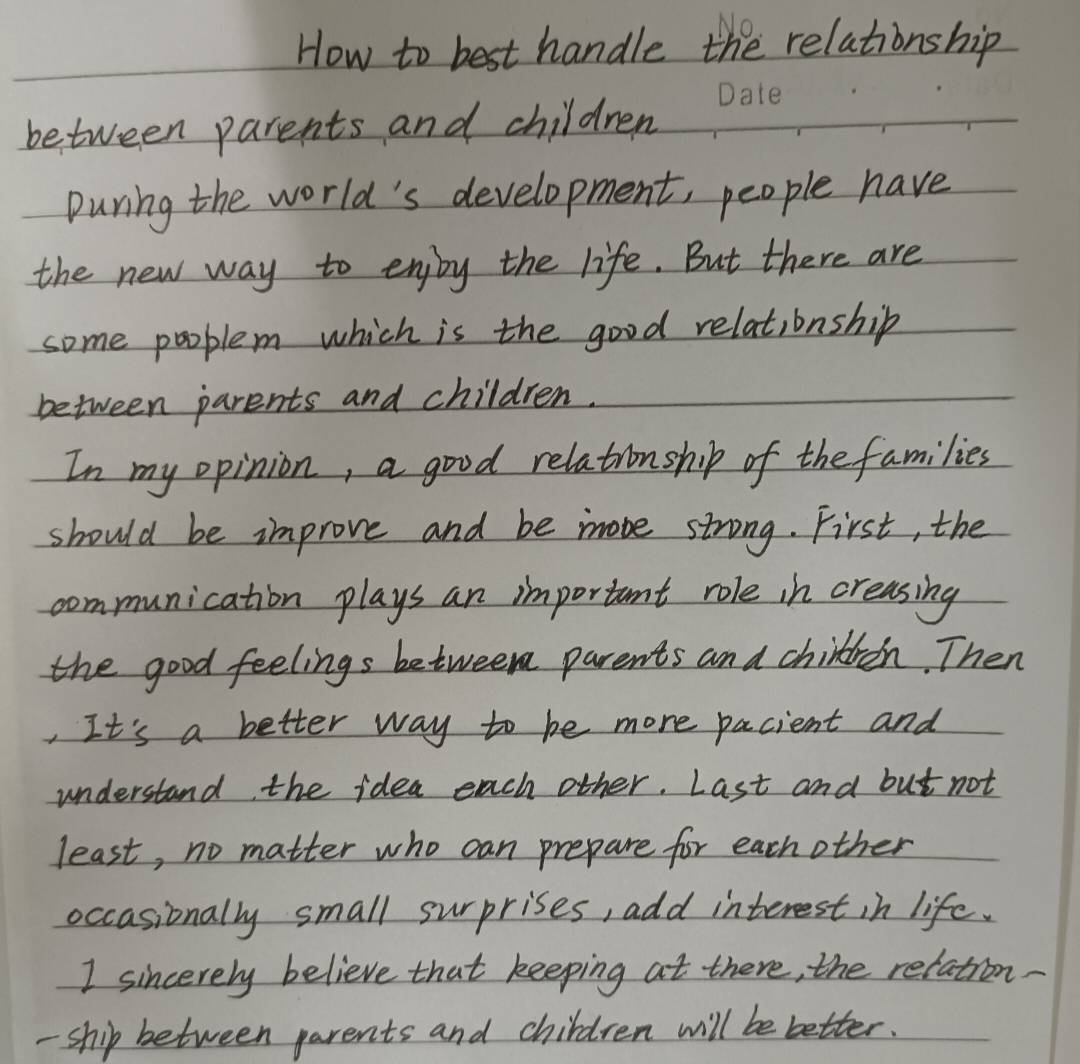 No.
How to best handle the relationship
Date
between parents and children
During the world's development, people have
the new way to enjoy the life. But there are
some pooplem which is the good relationship
between parents and children.
In my opinion, a good relationship of the families
should be improve and be more strong. First, the
communication plays an important role in creasing
the good feelings between parents and children. Then
, It's a better way to be more pacient and
understand the idea each other. Last and but not
least, no matter who can prepare for each other
occasionally small surprises, add interest in life.
I sincerely believe that keeping at there, the relation-
-ship between parents and children will be better.